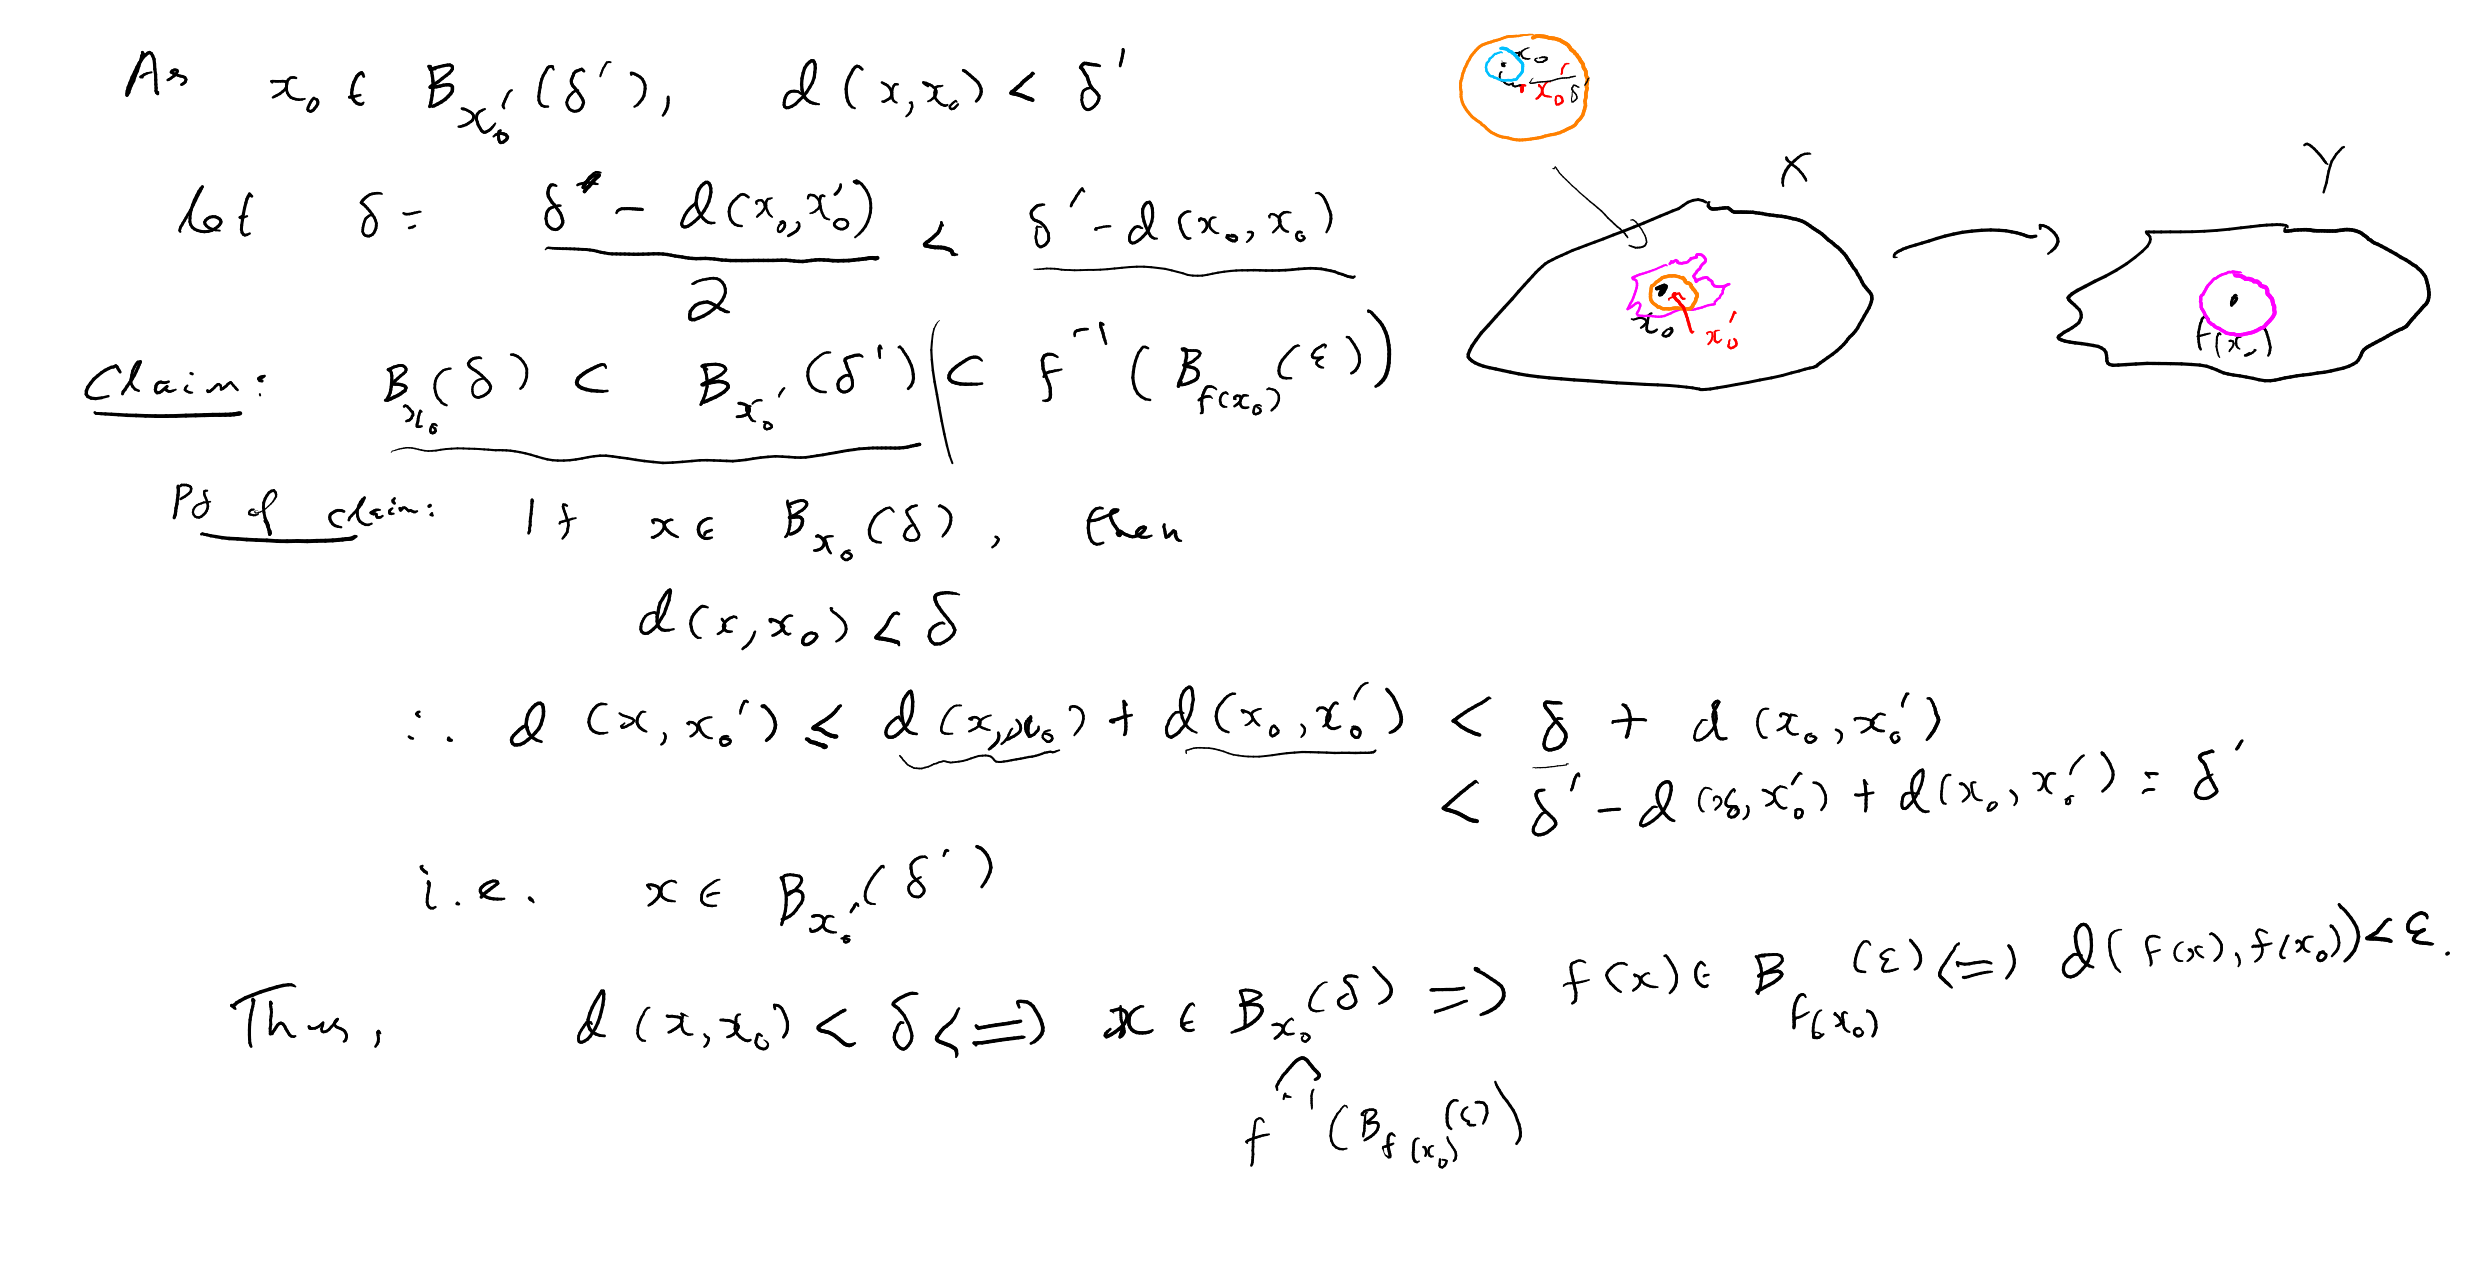 As x₀ ∈ B_{x₀′}(δ′), d(x,x₀) < δ′
let δ = (δ′ − d(x₀,x₀′))/2 < δ′ − d(x₀,x₀)
Claim: B_{x₀}(δ) ⊂ B_{x₀′}(δ′) ⊂ f⁻¹(B_{f(x₀)}(ε))
Pf of claim: If x ∈ B_{x₀}(δ), then
d(x,x₀) < δ
∴ d(x,x₀′) ≤ d(x,x₀) + d(x₀,x₀′) < δ + d(x₀,x₀′)
< δ′ − d(x₀,x₀′) + d(x₀,x₀′) = δ′
i.e. x ∈ B_{x₀′}(δ′)
Thus, d(x,x₀) < δ <=> x ∈ B_{x₀}(δ) => f(x) ∈ B_{f(x₀)}(ε) <=> d(f(x),f(x₀)) < ε.
∩
f⁻¹(B_{f(x₀)}(ε))
x₀
x₀′
δ′
X
Y
x₀
x₀′
f(x₀)